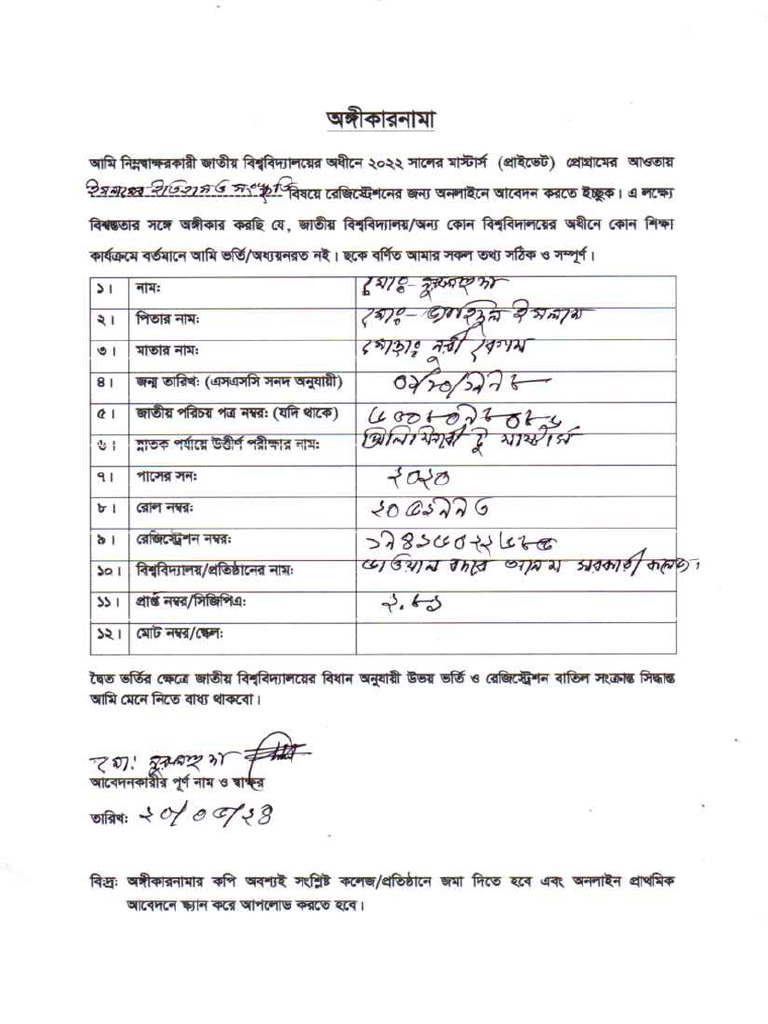 অঙ্গীকারনামা
আমি নিম্নস্বাক্ষরকারী জাতীয় বিশ্ববিদ্যালয়ের অধীনে ২০২২ সালের মাস্টার্স (প্রাইভেট) প্রোগ্রামের আওতায়
ইসলামের ইতিহাস ও সংস্কৃতি বিষয়ে রেজিস্ট্রেশনের জন্য অনলাইনে আবেদন করতে ইচ্ছুক। এ লক্ষ্যে
বিশ্বস্ততার সঙ্গে অঙ্গীকার করছি যে, জাতীয় বিশ্ববিদ্যালয়/অন্য কোন বিশ্ববিদালয়ের অধীনে কোন শিক্ষা
কার্যক্রমে বর্তমানে আমি ভর্তি/অধ্যয়নরত নই। ছকে বর্ণিত আমার সকল তথ্য সঠিক ও সম্পূর্ণ।
১। নাম: মোঃ-
২। পিতার নাম: মোঃ- ইসলাম
৩। মাতার নাম: মোছাঃ নুরী বেগম
৪। জন্ম তারিখ: (এসএসসি সনদ অনুযায়ী)
৫। জাতীয় পরিচয় পত্র নম্বর: (যদি থাকে)
৬। স্নাতক পর্যায়ে উত্তীর্ণ পরীক্ষার নাম: প্রিলিমিনারী টু মাস্টার্স
৭। পাসের সন: ২০২০
৮। রোল নম্বর:
৯। রেজিস্ট্রেশন নম্বর:
১০। বিশ্ববিদ্যালয়/প্রতিষ্ঠানের নাম: ভাওয়াল বদরে আলম সরকারী কলেজ।
১১। প্রাপ্ত নম্বর/সিজিপিএ: ২.৮১
১২। মোট নম্বর/স্কেল:
দ্বৈত ভর্তির ক্ষেত্রে জাতীয় বিশ্ববিদ্যালয়ের বিধান অনুযায়ী উভয় ভর্তি ও রেজিস্ট্রেশন বাতিল সংক্রান্ত সিদ্ধান্ত
আমি মেনে নিতে বাধ্য থাকবো।
মো:
আবেদনকারীর পূর্ণ নাম ও স্বাক্ষর
তারিখ:
বি:দ্র: অঙ্গীকারনামার কপি অবশ্যই সংশ্লিষ্ট কলেজ/প্রতিষ্ঠানে জমা দিতে হবে এবং অনলাইন প্রাথমিক
আবেদনে স্ক্যান করে আপলোড করতে হবে।